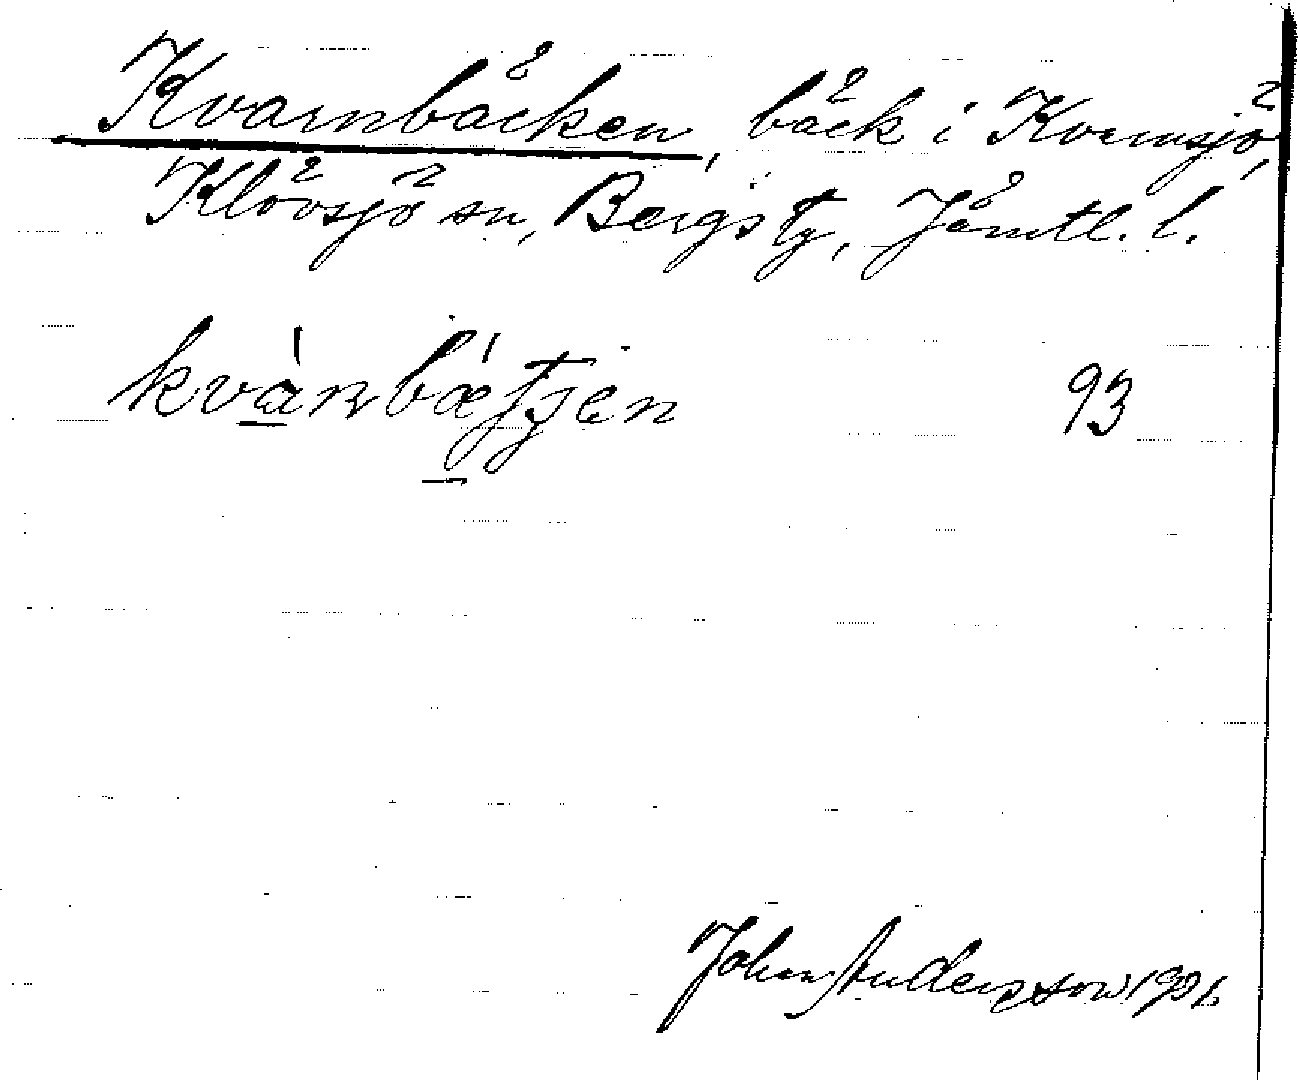 Kvarnbäcken, bäck i Kvarnsjö,
Klövsjö sn, Bergs tg, Jämtl. l.
kvànbætjen 93
John Andersson 1931.